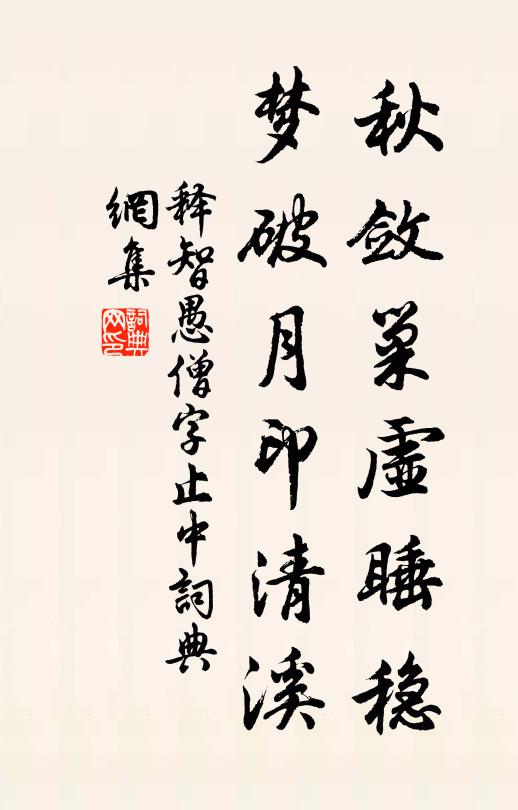 秋斂巢虛睡穩
梦破月印清溪
释智愚僧字止中詞典
網集
詞典
网印